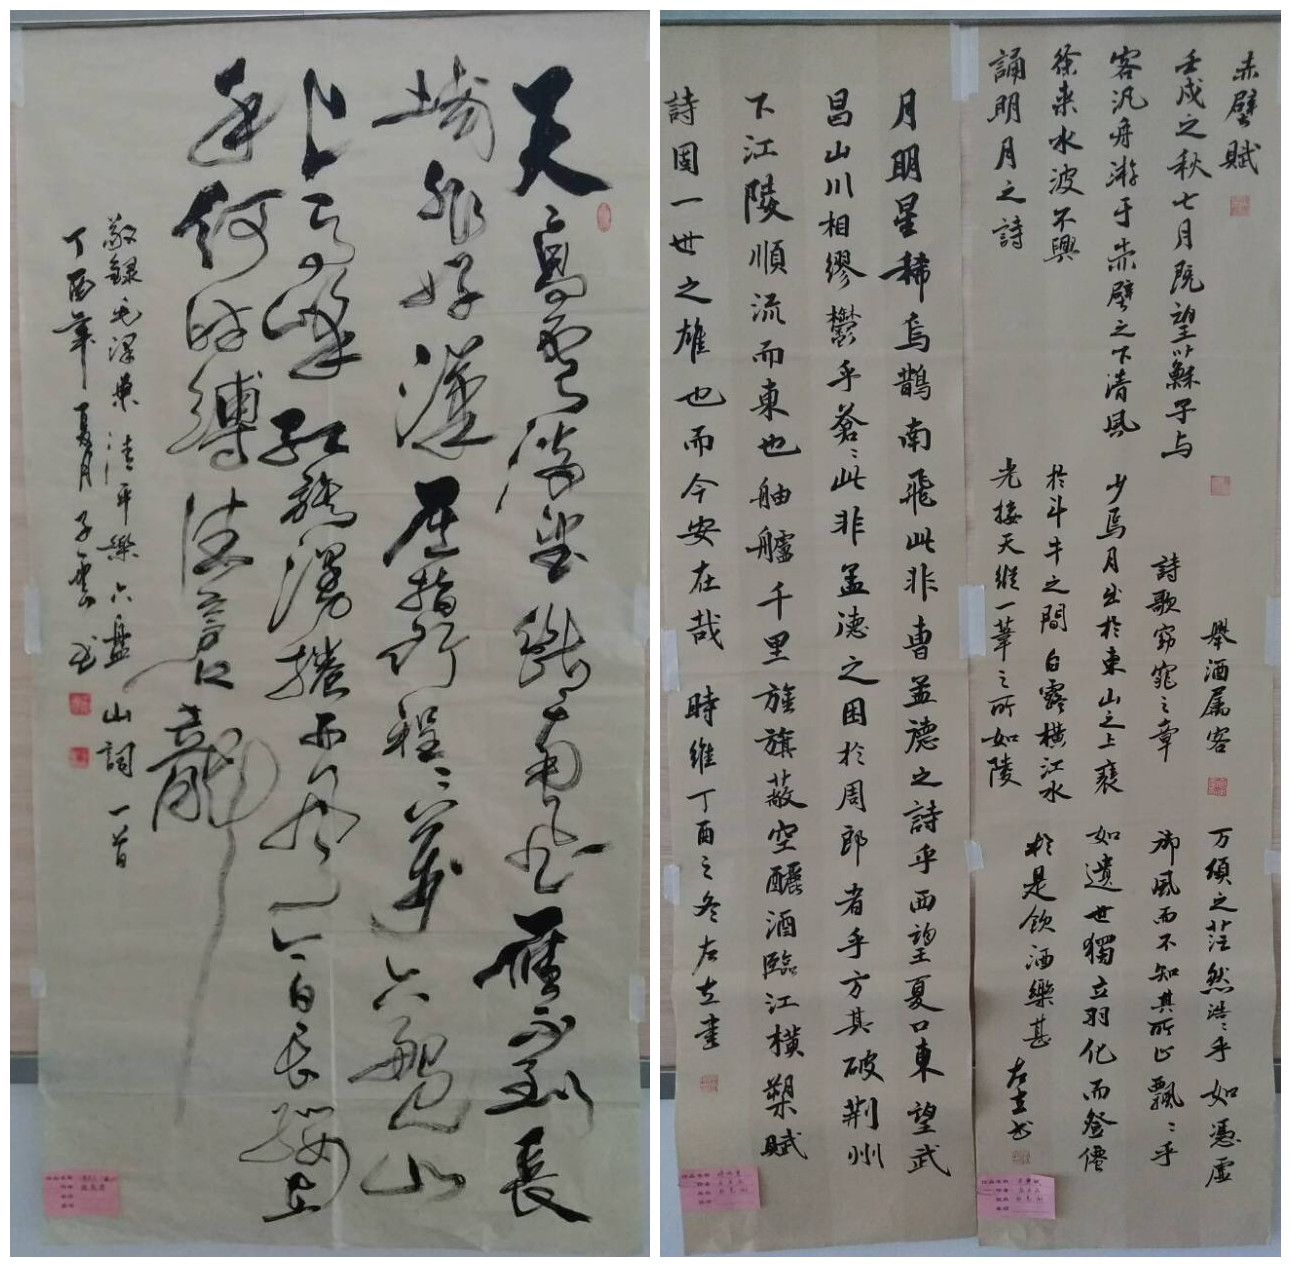 天高雲淡望斷南飛雁不到長
城非好漢屈指行程二萬六盤山
上高峰紅旗漫捲西風今日長纓在
手何時縛住蒼龍
敬錄毛澤東清平樂六盤山詞一首
丁酉年夏月子雲书
赤壁賦
壬戌之秋七月既望蘇子与
客汎舟游于赤壁之下清風
徐来水波不興
誦明月之詩
舉酒属客
詩歌窈窕之章
少焉月出於東山之上裵
於斗牛之間白露橫江水
光接天縱一葦之所如陵
万頃之茫然浩〻乎如憑虛
御風而不知其所止飄〻乎
如遺世獨立羽化而登僊
於是飲酒樂甚
左立书
月明星稀烏鵲南飛此非曹孟德之詩乎西望夏口東望武
昌山川相繆鬱乎蒼〻此非孟德之困於周郎者乎方其破荆州
下江陵順流而東也舳艫千里旌旗蔽空釃酒臨江橫槊賦
詩固一世之雄也而今安在哉 時維丁酉之冬左立書